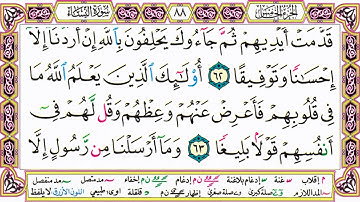 سورة النساء ٨٨ الجزء الخامس
قَدَّمَتْ أَيْدِيهِمْ ثُمَّ جَآءُوكَ يَحْلِفُونَ بِٱللَّهِ إِنْ أَرَدْنَآ إِلَّآ
إِحْسَٰنًا وَتَوْفِيقًا ٦٢ أُو۟لَٰٓئِكَ ٱلَّذِينَ يَعْلَمُ ٱللَّهُ مَا
فِى قُلُوبِهِمْ فَأَعْرِضْ عَنْهُمْ وَعِظْهُمْ وَقُل لَّهُمْ فِىٓ
أَنفُسِهِمْ قَوْلًۢا بَلِيغًا ٦٣ وَمَآ أَرْسَلْنَا مِن رَّسُولٍ إِلَّا